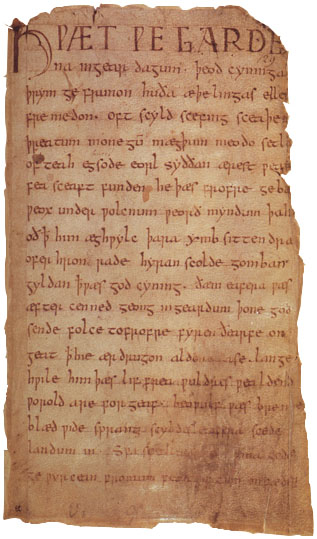 HǷÆT ǷE GARDE
na ingear dagum. þeod cyninga
þrym ge frunon huða æþelingas elle
fre medon. oft scyld scefing sceaþe
þreatum monegū mægþum meodo setl
ofteah egsode eorl syððan ærest ƿear
fea sceaft funden he þæs frofre geba
ƿeox under ƿolcnum ƿeorð myndum þah
oð ꝥ him æghƿylc þara ymb sittendra
ofer hron rade hyran scolde gomban
gyldan ꝥ ƿæs god cyning. ðæm eafera ƿæs
æfter cenned geong ingeardum þone god
sende folce tofrofre fyren ðearfe on
geat ꝥ hie ær drugon aldor ase. lange
hƿile him þæs liffrea ƿuldres ƿealdend
ƿorold are forgeaf. beoƿulf ƿæs breme
blæd ƿide sprang scyldes eafera scede
landum in. Sƿa guma gode
ge ƿyrcean fromum